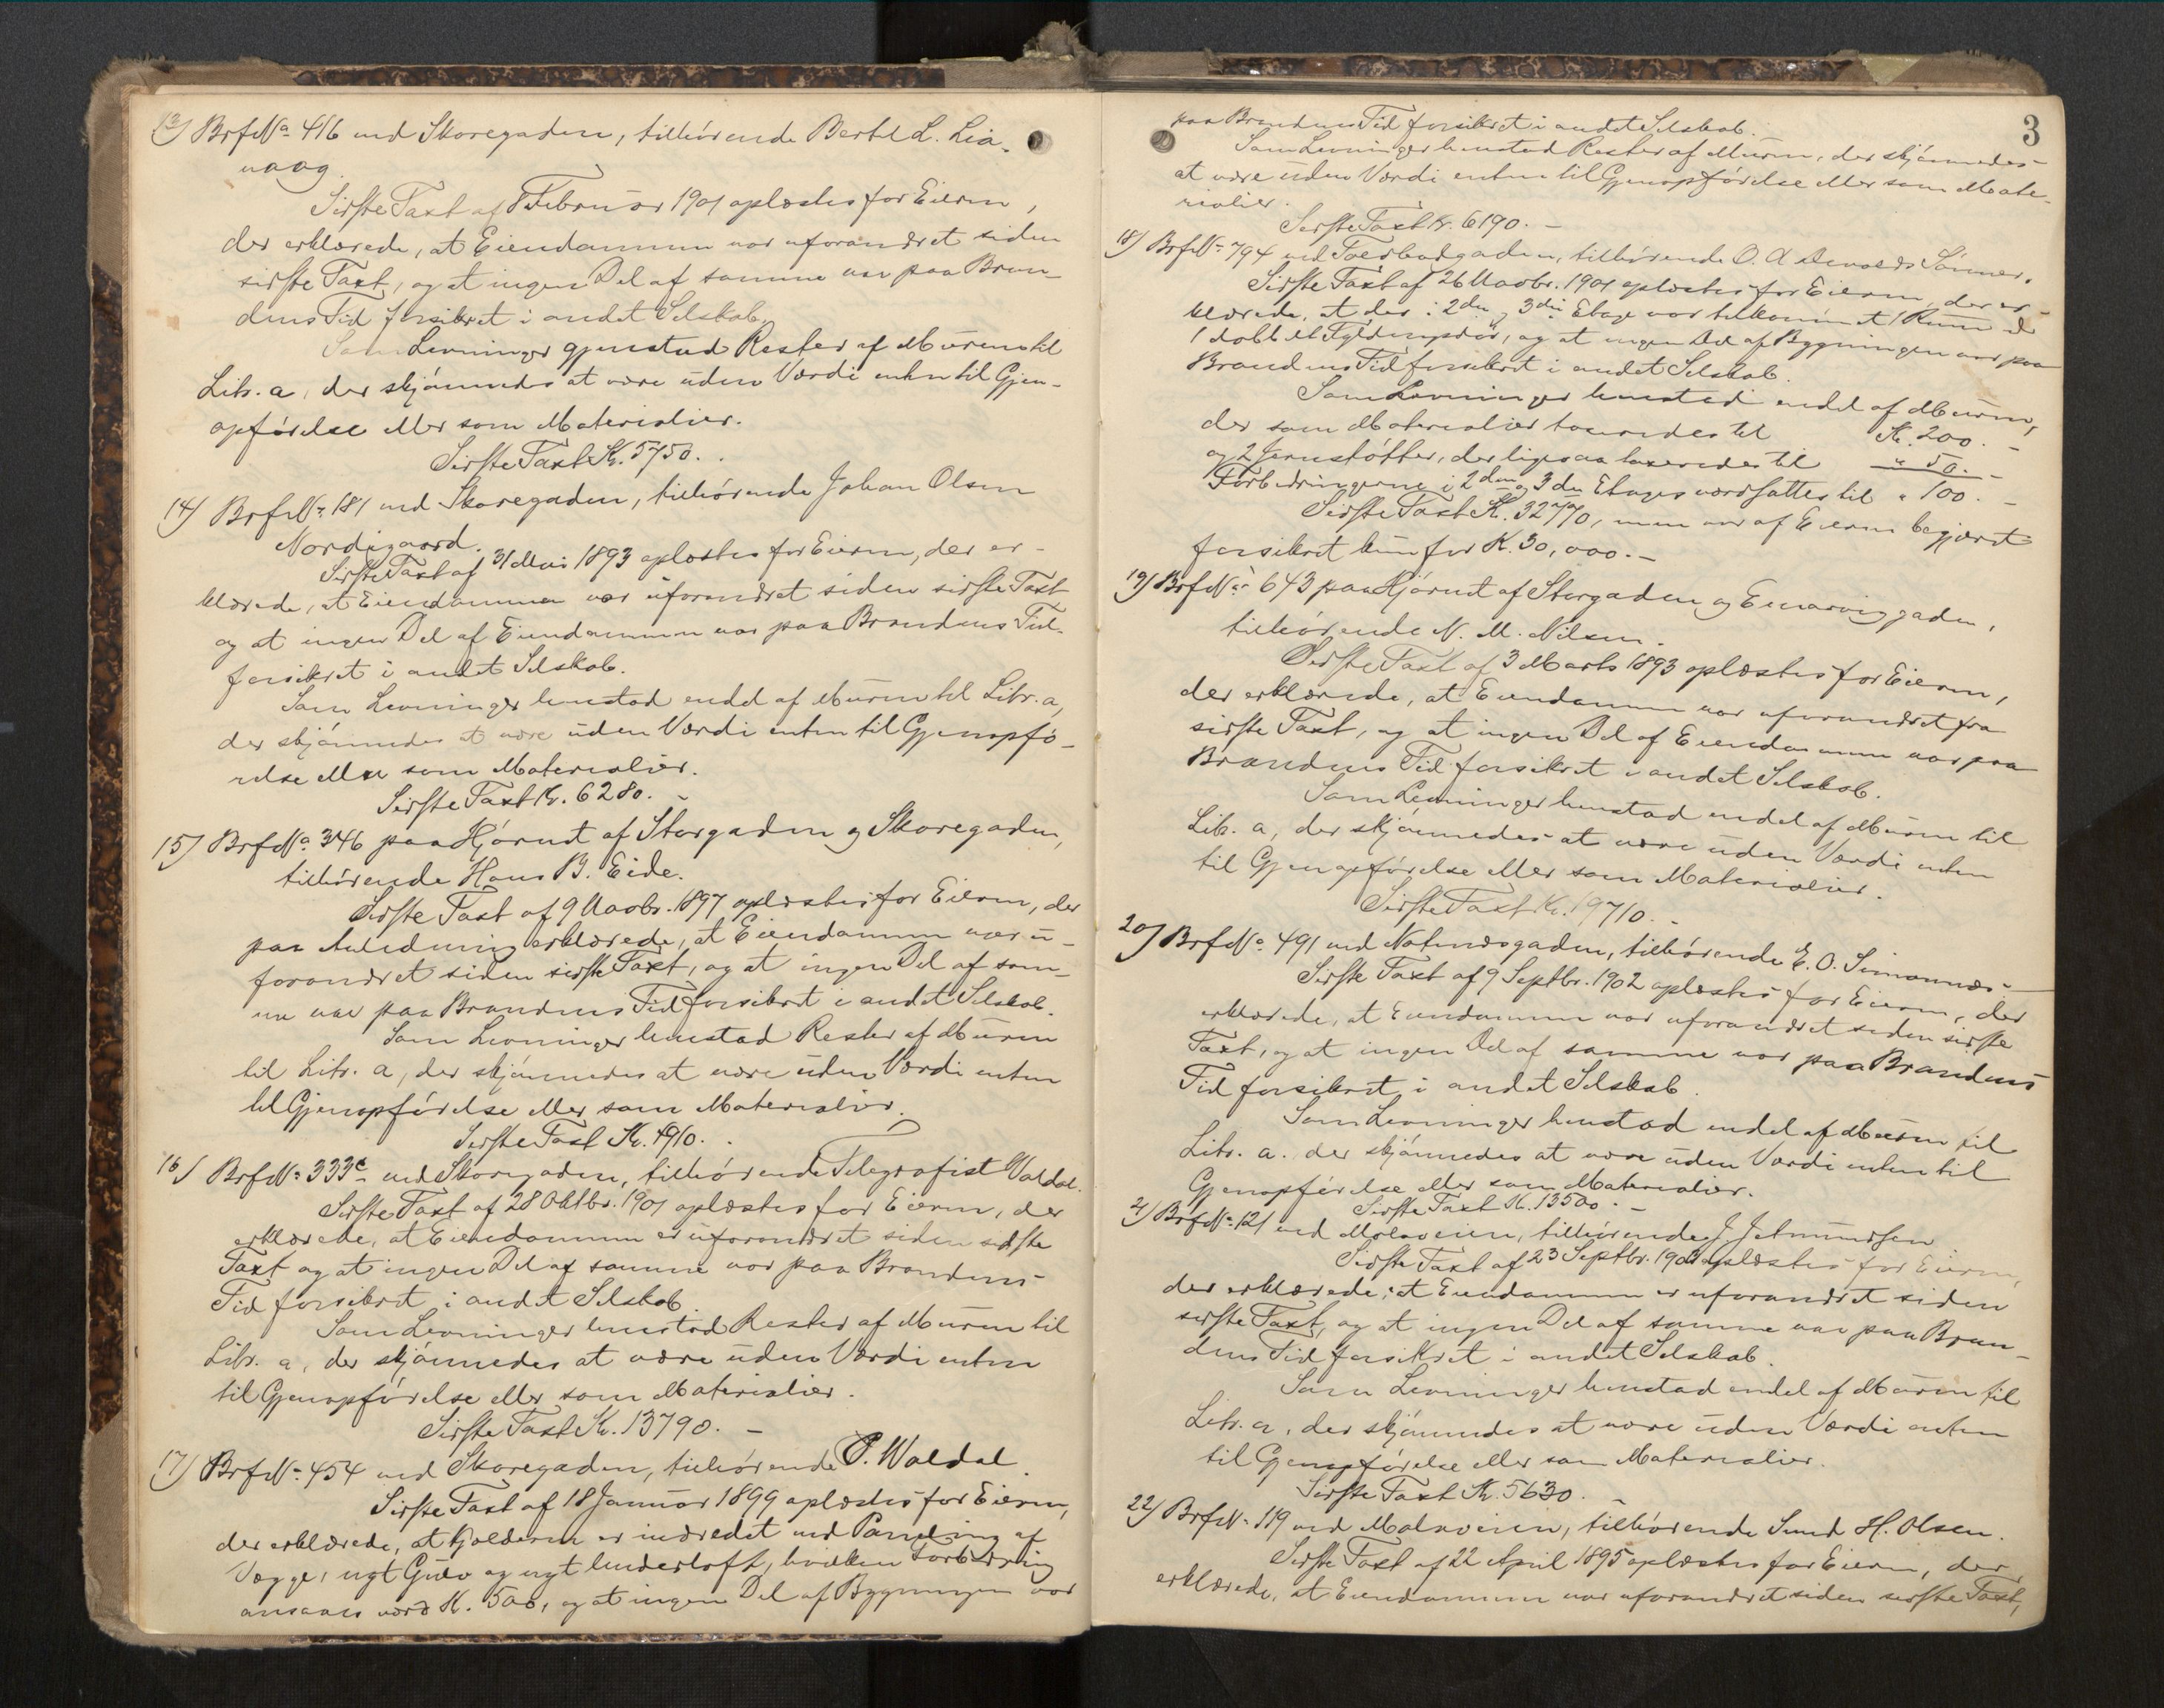 13) Brf.No 416 ved Skaregaden, tilhørende Bertel L. Lia-
vaag.
Sidste Taxt af 8 Februar 1901 oplæstes for Eieren,
der erklærede, at Eiendommen var uforandret siden
sidste Taxt, og at ingen Del af samme var paa Bran-
dens Tid forsikret i andet Selskab.
Som Levninger gjenstod Rester af Muren til
Litr. a, der skjønnedes at være uden Værdi enten til Gjen-
opførelse eller som Materialier.
Sidste Taxt Kr. 5750. -
14) Brf.No 181 ved Skaregaden, tilhørende Johan Olsen
Nordigaard.
Sidste Taxt af 31 Mai 1893 oplæstes for Eieren, der er-
klærede, at Eiendommen var uforandret siden sidste Taxt
og at ingen Del af Eiendommen var paa Brandens Tid
forsikret i andet Selskab.
Som Levninger henstod endel af Muren til Litr. a,
der skjønnedes at være uden Værdi enten til Gjenopfø-
relse eller som Materialier.
Sidste Taxt Kr. 6280. -
15) Brf.No 346 paa Hjørnet af Storgaden og Skaregaden,
tilhørende Hans B. Eide.
Sidste Taxt af 9 Novbr. 1897 oplæstes for Eieren, der
paa Anledning erklærede, at Eiendommen var u-
forandret siden sidste Taxt, og at ingen Del af sam-
me var paa Brandens Tid forsikret i andet Selskab.
Som Levninger henstod Rester af Muren
til Litr. a, der skjønnedes at være uden Værdi enten
til Gjenopførelse eller som Materialier.
Sidste Taxt Kr. 4910. -
16) Brf.No 333c ved Skaregaden, tilhørende Telegrafist Valdal.
Sidste Taxt af 28 Oktbr. 1901 oplæstes for Eieren, der
erklærede, at Eiendommen er uforandret siden sidste
Taxt og at ingen Del af samme var paa Brandens
Tid forsikret i andet Selskab.
Som Levninger henstod Rester af Muren til
Litr. a, der skjønnedes at være uden Værdi enten
til Gjenopførelse eller som Materialier.
Sidste Taxt Kr. 13790. -
17) Brf.No 454 ved Skaregaden, tilhørende P. Waldal.
Sidste Taxt af 18 Januar 1899 oplæstes for Eieren,
der erklærede, at Kjelderen er indredet med Paneling af
Vægge, nyt Gulv og nyt Underloft, hvilken Forbedring
ansaaes værd Kr. 500, og at ingen Del af Bygningen var
3
paa Brandens Tid forsikret i andet Selskab.
Som Levninger henstod Rester af Muren, der skjønnedes
at være uden Værdi enten til Gjenopførelse eller som Mate-
rialier.
Sidste Taxt Kr. 6190. -
18) Brf.No 794 ved Toldbodgaden, tilhørende O. A. Devolds Sønner.
Sidste Taxt af 26 Novbr. 1901 oplæstes for Eieren, der er-
klærede, at der i 2den og 3die Etage var tilkommet 1 Rum
1 dobbelt Fyldingsdør, og at ingen Del af Bygningen var paa
Brandens Tid forsikret i andet Selskab.
Som Levninger henstod endel af Muren,
der som Materialier taxeredes til Kr. 200. -
og 2 Jernstøtter, der ligesaa taxeredes til " 50. -
Forbedringerne i 2den og 3die Etages værdsattes til " 100. -
Sidste Taxt Kr. 32770, men var af Eieren begjæret
forsikret kun for Kr. 30,000. -
19) Brf.No 643 paa Hjørnet af Storgaden og Einarviggaden,
tilhørende N. M. Nilsen.
Sidste Taxt af 3 Marts 1893 oplæstes for Eieren,
der erklærede, at Eiendommen var uforandret fra
sidste Taxt, og at ingen Del af Eiendommen var paa
Brandens Tid forsikret i andet Selskab.
Som Levninger henstod endel af Muren til
Litr. a, der skjønnedes at være uden Værdi enten
til Gjenopførelse eller som Materialier.
Sidste Taxt Kr. 19710. -
20) Brf.No 491 ved Notenæsgaden, tilhørende E. O. Simonnæs. -
Sidste Taxt af 9 Septbr. 1902 oplæstes for Eieren, der
erklærede, at Eiendommen var uforandret siden sidste
Taxt, og at ingen Del af samme var paa Brandens
Tid forsikret i andet Selskab.
Som Levninger henstod endel af Muren til
Litr. a. der skjønnedes at være uden Værdi enten til
Gjenopførelse eller som Materialier.
Sidste Taxt Kr. 13500. -
21) Brf.No 121 ved Moloveien, tilhørende J. Jetmundsen
Sidste Taxt af 23 Septbr. 1901 oplæstes for Eieren,
der erklærede, at Eiendommen er uforandret siden
sidste Taxt, og at ingen Del af samme var paa Bran-
dens Tid forsikret i andet Selskab.
Som Levninger henstod endel af Muren til
Litr. a, der skjønnedes at være uden Værdi enten
til Gjenopførelse eller som Materialier.
Sidste Taxt Kr. 5630.
22) Brf.No 119 ved Moloveien, tilhørende Sund H. Olsen.
Sidste Taxt af 22 April 1895 oplæstes for Eieren, der
erklærede, at Eiendommen var uforandret siden sidste Taxt,